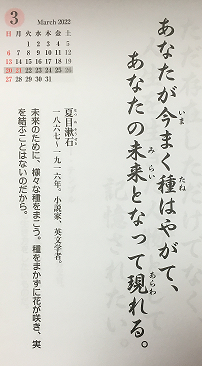 3
March 2022
日 月 火 水 木 金 土
1 2 3 4 5
6 7 8 9 10 11 12
13 14 15 16 17 18 19
20 21 22 23 24 25 26
27 28 29 30 31
あなたが今まく種はやがて、
あなたの未来となって現れる。
夏目漱石
一八六七~一九一六年。小説家、英文学者。
未来のために、様々な種をまこう。種をまかずに花が咲き、実
を結ぶことはないのだから。